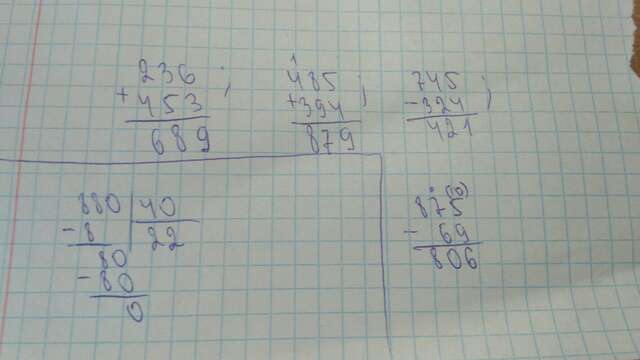 1
236 ; 485 ; 745 ;
+ 453 +394 -324
689 879 421
880 | 40
- 8 22
80
- 80
0
. (10)
875
- 69
806